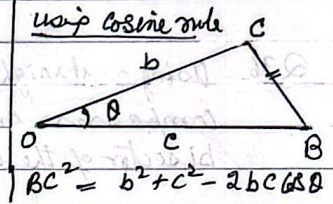 using Cosine rule
C
b
θ
O
c
B
BC² = b² + c² - 2bc Cosθ